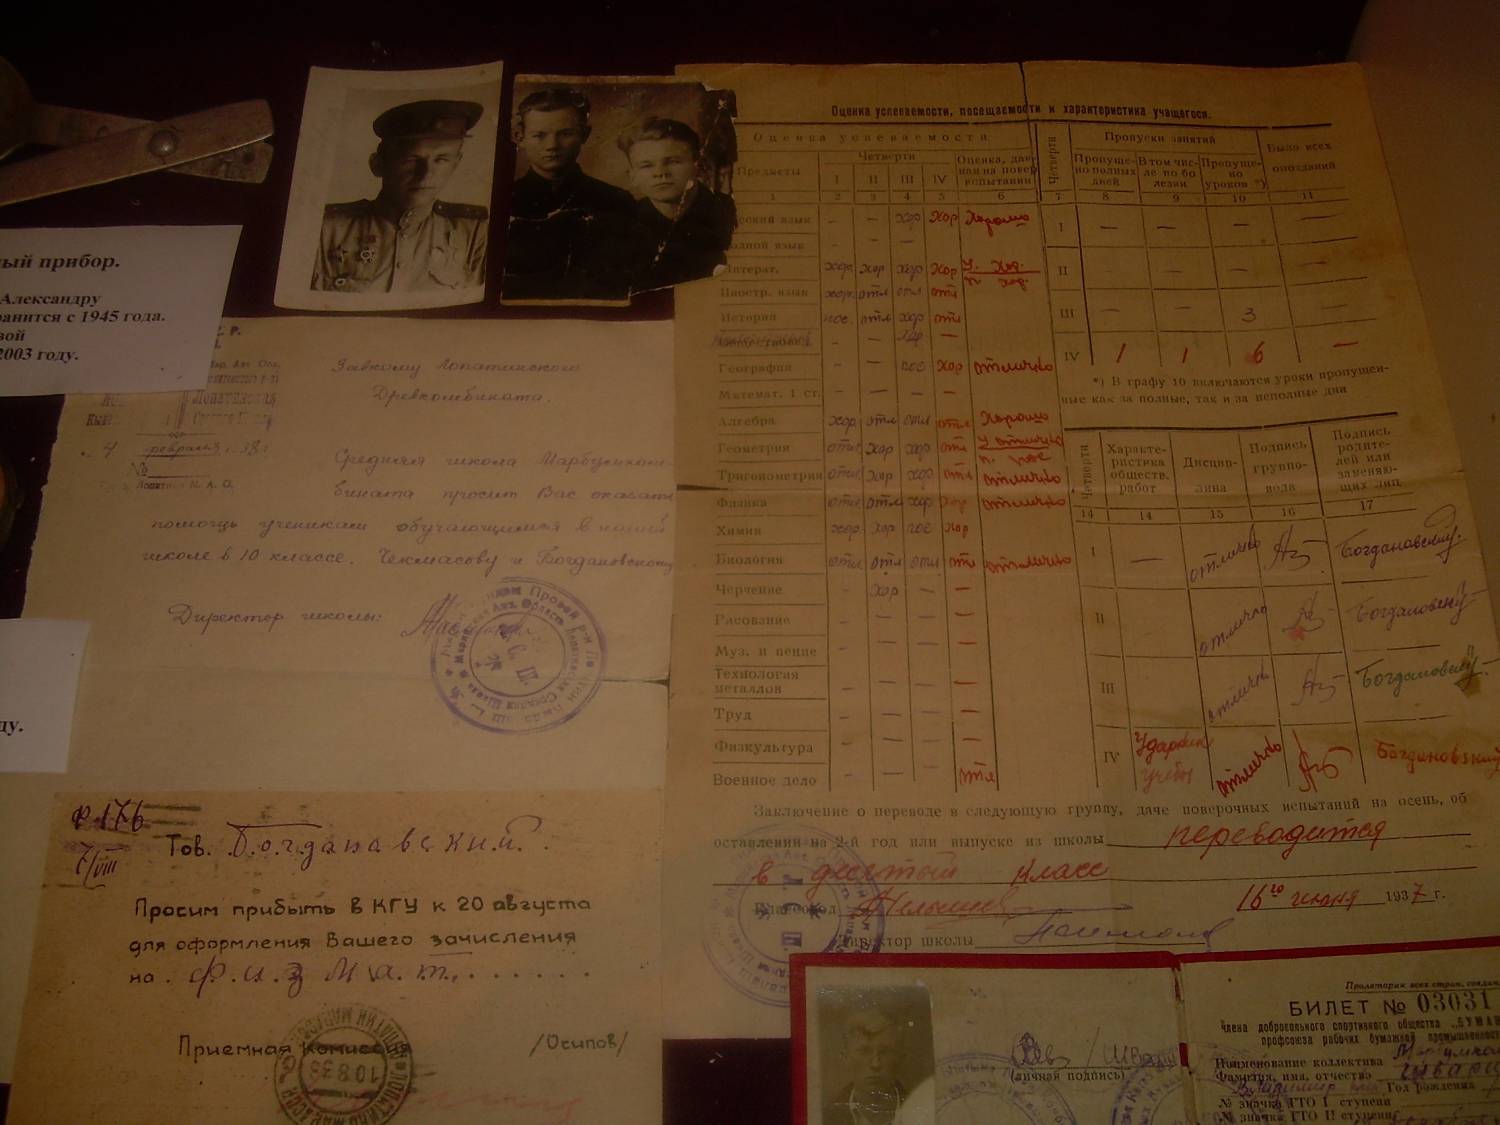 ный прибор.
Александру
ранится с 1945 года.
вой
2003 году.
ду.
Завкому Лопатинского
Древкомбината.
4 февраля 38 г
№
Средняя школа Марбумком-
бината просит Вас оказать
помощь ученикам обучающимся в нашей
школе в 10 классе. Чекмасову и Богдановскому
Директор школы:
Ф 176
7/VIII
Тов. Богдановским.
Просим прибыть в КГУ к 20 августа
для оформления Вашего зачисления
на . Физмат. . . . . . .
Приемная Комиссия /Осипов/
10.8.38
Оценка успеваемости, посещаемости и характеристика учащегося.
Оценка успеваемости
Предметы
Четверти
I II III IV
Оценка, дан-
ная на повер.
испытании
1 2 3 4 5 6
сский язык — — хор хор Хорошо
одной язык — — —
Литерат. хор хор хор хор У. хор.
п. хор.
Иностр. язык хор. отл отл отл
История пос. отл хор отл
хор —
География — — пос хор отлично
Математ. 1 ст. — — — —
Алгебра хор отл отл отл Хорошо
Геометрия отл хор хор отл У отлично
п. пос
Тригонометрия отл хор хор отл отлично
Физика отл отл хор хор отлично
Химия хор. хор пос хор
Биология отл отл отл отл отлично
Черчение — хор — —
Рисование — — — —
Муз. и пение — — — —
Технология
металлов — — — —
Труд — — — —
Физкультура — — — —
Военное дело — — — отл
Четверти
Пропуски занятий
Пропуще-
но полных
дней
В том чис-
ле по бо
лезни
Пропуще-
но
уроков *)
Было всех
опозданий
7 8 9 10 11
I — — — —
II — — — —
III — — 3 —
IV 1 1 6 —
*) В графу 10 включаются уроки пропущен-
ные как за полные, так и за неполные дни
Четверти
Характе-
ристика
обществ.
работ
Дисцип-
лина
Подпись
группо-
вода
Подпись
родите-
лей или
заменяю-
щих лиц
14 14 15 16 17
I — отлично Богдановский
II — отлично Богдановский
III — отлично Богдановский
IV Ударник
учебы отлично Богдановский
Заключение о переводе в следующую группу, даче поверочных испытаний на осень, об
оставлении на 2-й год или выпуске из школы переводится
в десятый класс
16го июня 1937 г.
Директор школы
Пролетарии всех стран, соедин
БИЛЕТ № 03031
члена добровольного спортивного общества „БУМА
профсоюза рабочих бумажной промышленнос
Наименование коллектива
Фамилия, имя, отчество
Год рождения
№ значка ГТО I ступени
№ значка ГТО II ступени
(личная подпись)